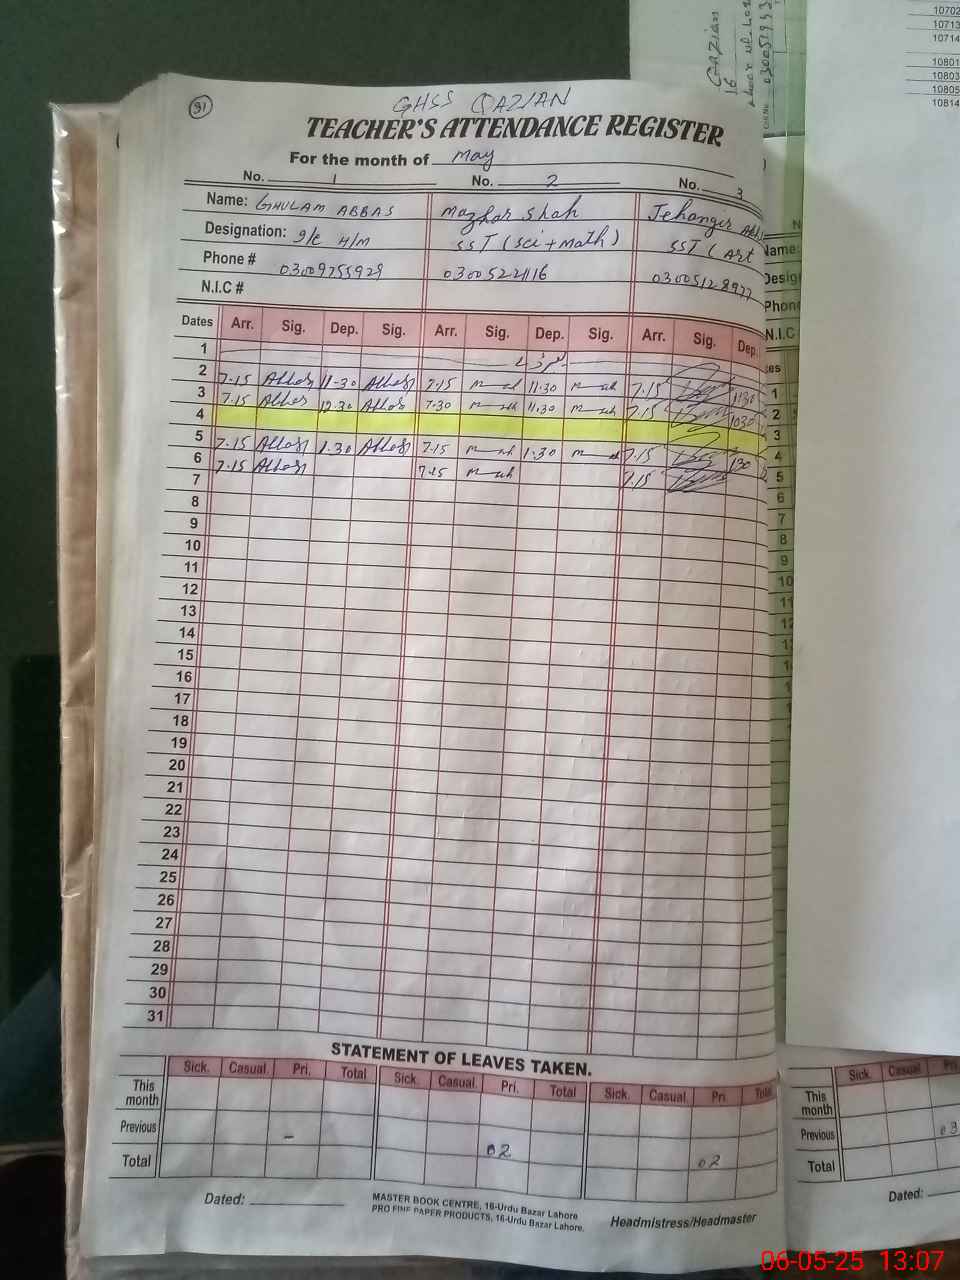 Gazian
16
10702
10713
10714
10801
10803
10805
10814
91
GHSS QAZIAN
TEACHER'S ATTENDANCE REGISTER
For the month of May
No. 1 No. 2 No. 3
Name: GHULAM ABBAS Mazhar Shah Jehangir
Designation: I/C H/M SST (Sci + Math) SST (Art
Phone # 03009755929 03005221116 03005128977
N.I.C #
Dates Arr. Sig. Dep. Sig. Arr. Sig. Dep. Sig. Arr. Sig. Dep.
1
2 7.15 Abbas 11-30 Abbas 7.15 11.30 7.15 1130
3 7.15 Abbas 12.30 Abbas 7.30 11.30 7.15 1030
4
5 7.15 Abbas 1.30 Abbas 7.15 1.30 7.15 130
6 7.15 Abbas 7.15 7.15
7
8
9
10
11
12
13
14
15
16
17
18
19
20
21
22
23
24
25
26
27
28
29
30
31
STATEMENT OF LEAVES TAKEN.
Sick. Casual. Pri. Total Sick. Casual. Pri. Total Sick. Casual. Pri. Total
This month
Previous - 02 02
Total
Dated:
MASTER BOOK CENTRE, 16-Urdu Bazar Lahore
PRO FINE PAPER PRODUCTS, 16-Urdu Bazar Lahore.
Headmistress/Headmaster
Name:
Desig
Phon
N.I.C
es
1
2
3
4
5
6
7
8
9
10
11
Sick. Casual
This month
Previous 03
Total
Dated:
06-05-25 13:07